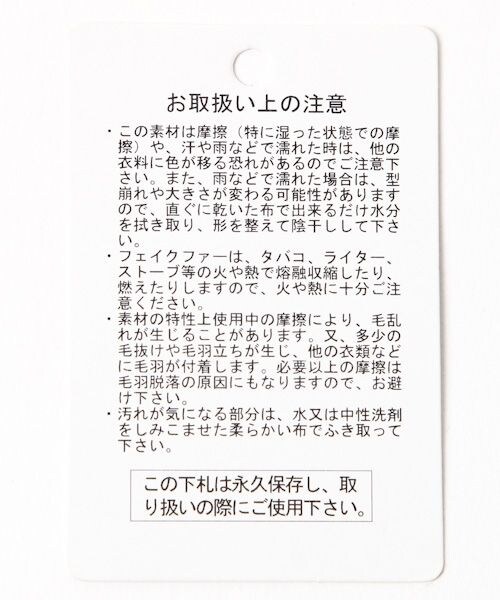 お取扱い上の注意
・この素材は摩擦（特に湿った状態での摩
擦）や、汗や雨などで濡れた時は、他の
衣料に色が移る恐れがあるのでご注意下
さい。また、雨などで濡れた場合は、型
崩れや大きさが変わる可能性があります
ので、直ぐに乾いた布で出来るだけ水分
を拭き取り、形を整えて陰干しして下さ
い。
・フェイクファーは、タバコ、ライター、
ストーブ等の火や熱で熔融収縮したり、
燃えたりしますので、火や熱に十分ご注
意ください。
・素材の特性上使用中の摩擦により、毛乱
れが生じることがあります。又、多少の
毛抜けや毛羽立ちが生じ、他の衣類など
に毛羽が付着します。必要以上の摩擦は
毛羽脱落の原因にもなりますので、お避
け下さい。
・汚れが気になる部分は、水又は中性洗剤
をしみこませた柔らかい布でふき取って
下さい。
この下札は永久保存し、取
り扱いの際にご使用下さい。